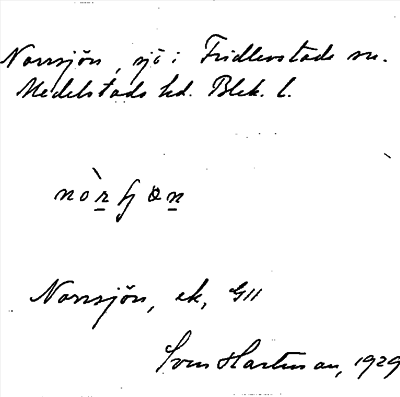 Norrsjön, sjö i Fridlevstads sn.
Medelstads hd. Blek. l.
nòr̲ʃøn̲
Norrsjön, ek, G11
Sven Hartman, 1929